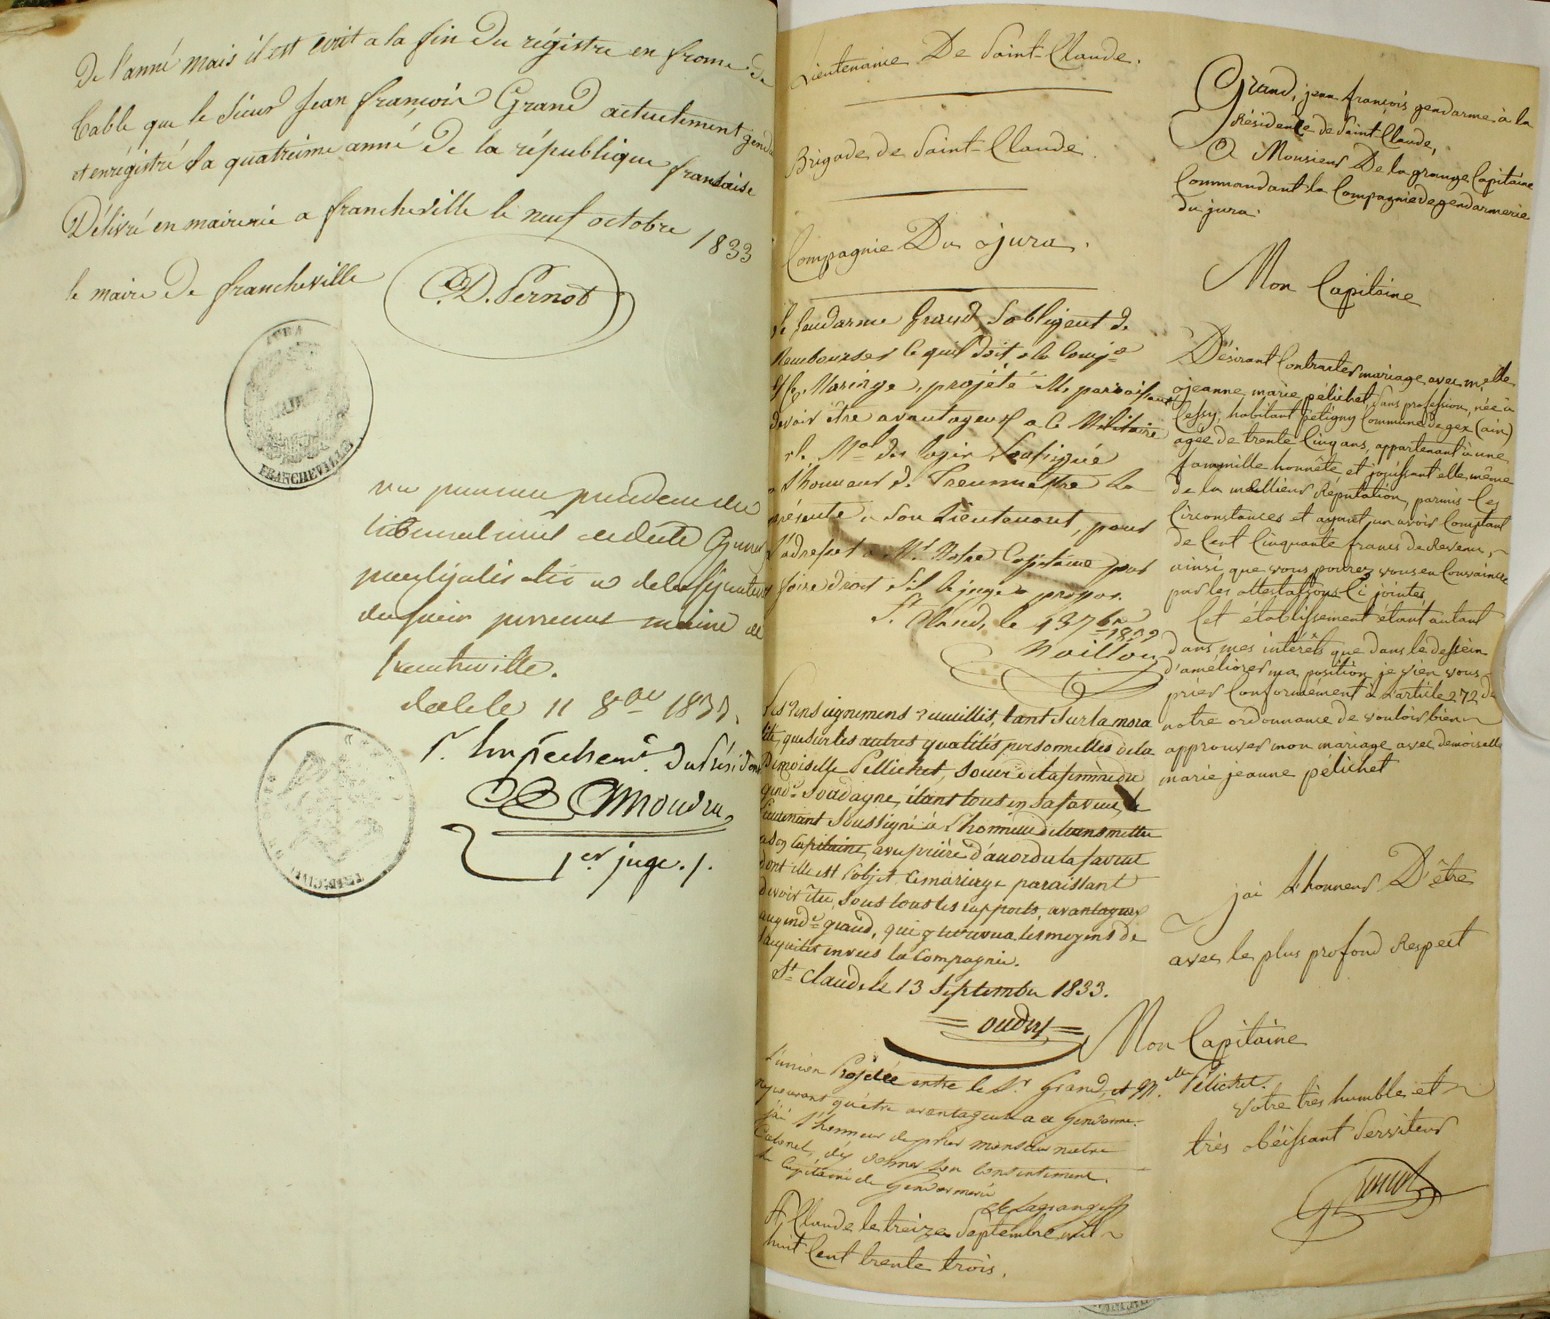 De l'anné mais il est écrit a la fin du régistre en frome de
table que le sieur Jean françois Grand actuelement gend
et enrégistré la quatreime anné de la république francaise
Délivré en mairerie a francheville le neuf octobre 1833
le maire de francheville C.D. Pernot
MAIRIE
FRANCHEVILLE
vu par nous président du
tribunal civil
pour légalisation de la signature
du sieur pernot maire de
francheville.
Dole le 11 8bre 1833.
Pr. Empechemt. du Présidant
Amoudru
1er juge./.
TRIB. CIVIL
Lieutenance De Saint-Claude.
Brigade de Saint-Claude.
Compagnie Du Jura.
le Gendarme Grand, s'obligent de
Rembourser ce quil doit a la Compie
le Mariage projété Me paroissant
devoir être avantageux a ce Militaire
le Mal des logis Soussigné
a l'honneur de Transmettre la
présente a son Lieutenant, pour
l'adresser a Mr Notre Capitaine pour
faire droit s'il le juge a propos.
St Claude, le 13 7bre 1833
Les renseignemens recueillis, tant sur la mora
lité, que sur les autres qualités personnelles de la
Demoiselle Pellichet, soeur de la femme du
gende Soudagne, étant tous en sa faveur, le
Lieutenant Soussigné à l'honneur de transmettre
a son Capitaine, avec prière d'accorder la faveur
dont elle est l'objet, ce mariage paraissant
devoir être, sous tous les rapports, avantageux
au gende grand, qui y trouvera les moyens de
s'acquitter envers la Compagnie.
St Claude le 13 Septembre 1833.
oudry
l'union Projétée entre le Sr. Grand, et Melle Pélichet.
ne pouvant qu'être avantageux a ce Gendarme.
j'ai l'honneur de prier monsieur notre
Colonel, d'y donner son consentiment.
le Capitaine de Gendarmerie
De lagrange
St Claude le treize Septembre mil
huit Cent trente trois.
Grand, jean françois gendarme à la
Résidence de Saint-Claude,
A Monsieur De la grange Capitaine
Commandant la Compagnie de gendarmerie
du jura.
Mon Capitaine
Désirant Contracter mariage avec melle
jeanne marie pélichet, sans profession, née à
Cessy, habitant pétigny Commune de gex (ain)
agée de trente Cinq ans, appartenant à une
famille honnête et jouissant elle même
de la meillieur Réputation, parmis les
Circonstances et ayant un avoir Comptant
de Cent Cinquante francs de Revenu,
ainsi que vous pourez vous en Convaincre
par les attestations Ci jointes
Cet établissement étant autant
dans mes intérêts que dans le dessein
d'améliorer ma position, je vien vous
prier Conformément à l'article 272 de
notre ordonnance de vouloir bien
approuver mon mariage avec demoiselle
marie jeanne pélichet
jai l'honneur D'être
avec le plus profond Respect
Mon Capitaine
votre très humble et
très obéissant Serviteur
Grand